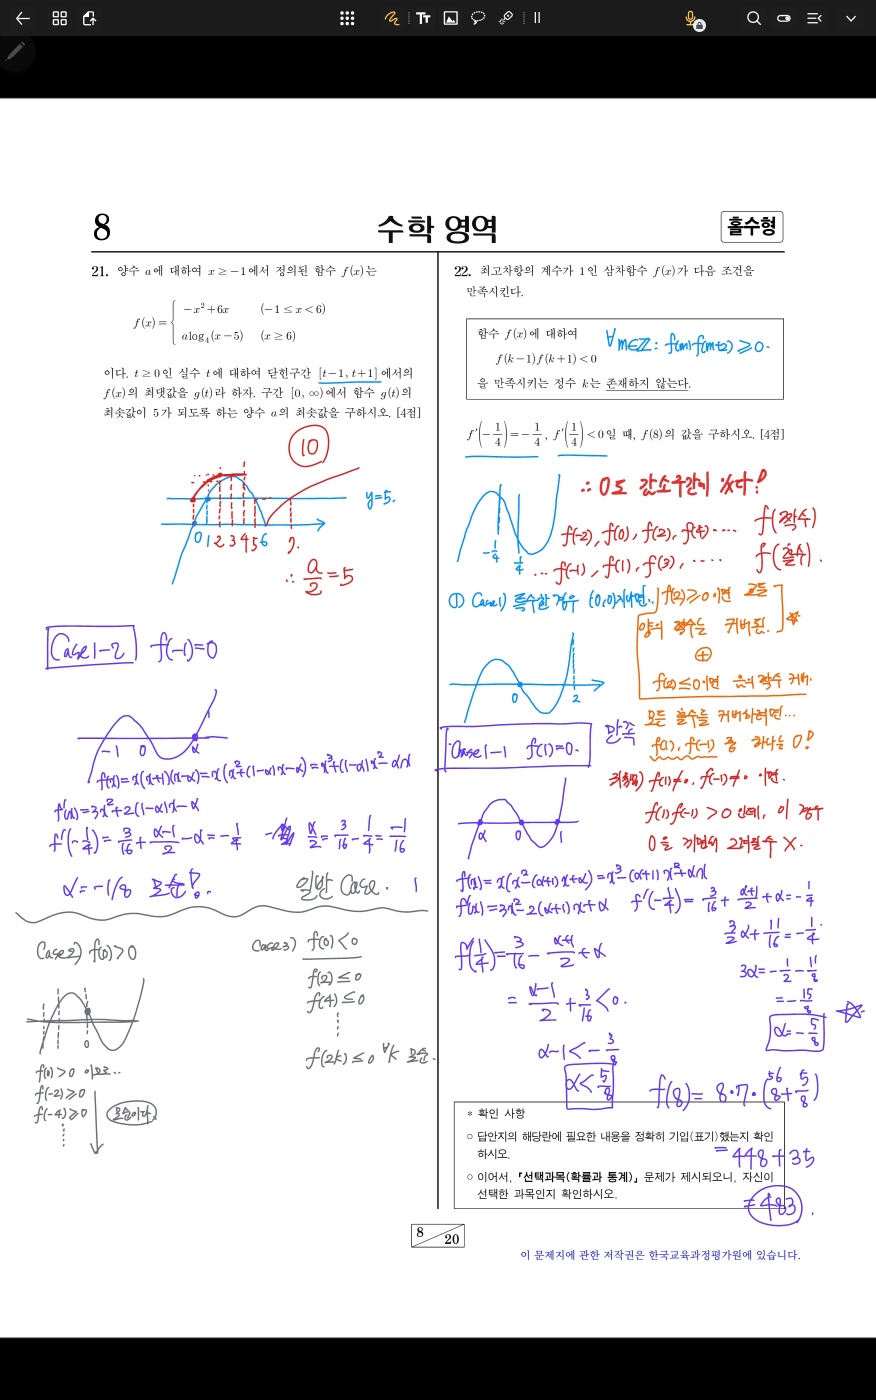 8
수학 영역
홀수형
21. 양수 a에 대하여 x ≥ −1에서 정의된 함수 f(x)는
f(x) = { −x²+6x (−1 ≤ x < 6)
alog₄(x−5) (x ≥ 6)
이다. t ≥ 0인 실수 t에 대하여 닫힌구간 [t−1, t+1]에서의
f(x)의 최댓값을 g(t)라 하자. 구간 [0, ∞)에서 함수 g(t)의
최솟값이 5가 되도록 하는 양수 a의 최솟값을 구하시오. [4점]
10
y=5.
0 1 2 3 4 5 6 9.
∴ a/2 = 5
Case 1-2 f(-1)=0
-1 0 α
f(x)=x(x+1)(x-α)=x(x²+(1-α)x-α)=x³+(1-α)x²-αx
f'(x)=3x²+2(1-α)x-α
f'(-1/4)=3/16+(α-1)/2-α=-1/4
α/2=3/16-1/4=-1/16
α=-1/8 모순!.
일반 Case.
Case2) f(0)>0
0
f(0)>0 이므로..
f(-2)≥0
f(-4)≥0
모순이다.
Case3) f(0)<0
f(2)≤0
f(4)≤0
f(2k)≤0 ∀k 모순.
22. 최고차항의 계수가 1인 삼차함수 f(x)가 다음 조건을
만족시킨다.
함수 f(x)에 대하여
∀m∈Z: f(m)f(m+2)≥0.
f(k−1)f(k+1) < 0
을 만족시키는 정수 k는 존재하지 않는다.
f′(−1/4) = −1/4, f′(1/4) < 0일 때, f(8)의 값을 구하시오. [4점]
-1/4 1/4
∴ 0도 감소구간에 있다!
f(-2), f(0), f(2), f(4)…. f(짝수)
… f(-1), f(1), f(3), …. f(홀수).
① Case1) 특수한 경우 (0,0)지나면..
0 2
f(2)≥0이면 모든
양의 짝수는 커버됨.
⊕
f(-2)≤0이면 음의 짝수 커버.
모든 홀수를 커버하려면…
f(1), f(-1) 중 하나는 0!
Case1-1 f(1)=0. 만족
f(1)≠0, f(-1)≠0 이면.
f(1)f(-1)>0 인데, 이 경우
0을 끼면서 그려질수 X.
α 0 1
f(x)=x(x²-(α+1)x+α)=x³-(α+1)x²+αx
f'(x)=3x²-2(α+1)x+α f'(-1/4)=3/16+(α+1)/2+α=-1/4
3/2α+11/16=-1/4.
3α=-1/2-11/8
=-15/8
α=-5/8
f'(1/4)=3/16-(α+1)/2+α
=(α-1)/2+3/16<0.
α-1<-3/8
α<5/8
f(8)=8·7·(8+5/8)
56
=448+35
=483.
* 확인 사항
○ 답안지의 해당란에 필요한 내용을 정확히 기입(표기)했는지 확인
하시오.
○ 이어서, 「선택과목(확률과 통계)」 문제가 제시되오니, 자신이
선택한 과목인지 확인하시오.
8/20
이 문제지에 관한 저작권은 한국교육과정평가원에 있습니다.